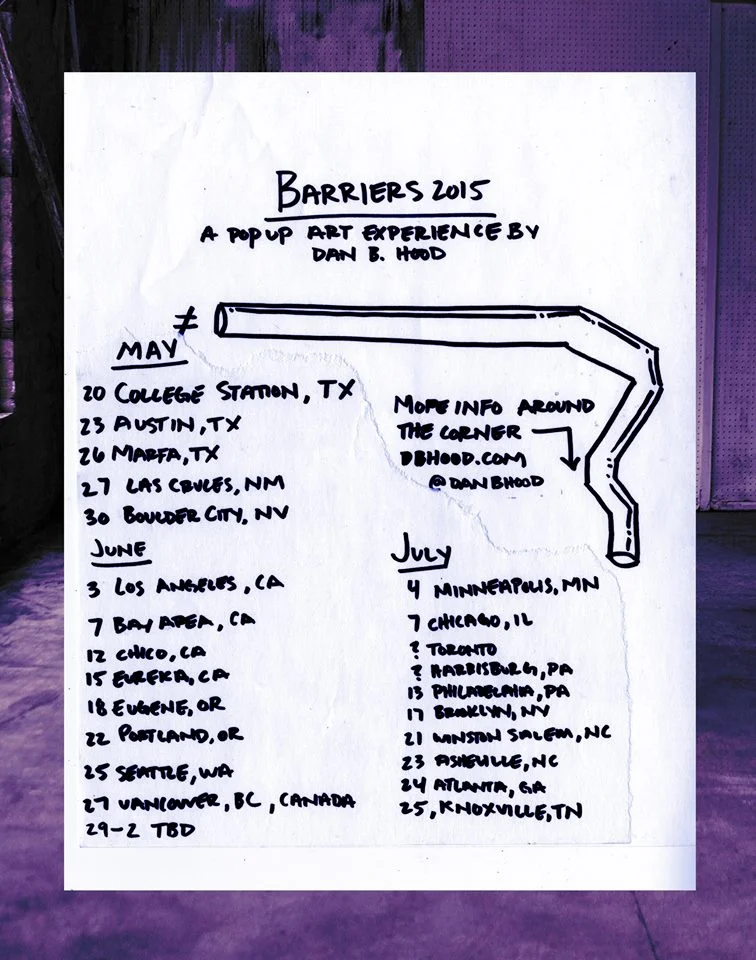 BARRIERS 2015
A POP UP ART EXPERIENCE BY
DAN B. HOOD
≠
MAY
20 COLLEGE STATION, TX
23 AUSTIN, TX
26 MARFA, TX
27 LAS CRUCES, NM
30 BOULDER CITY, NV
MORE INFO AROUND
THE CORNER
DBHOOD.COM
@DANBHOOD
JUNE
3 LOS ANGELES, CA
7 BAY AREA, CA
12 CHICO, CA
15 EUREKA, CA
18 EUGENE, OR
22 PORTLAND, OR
25 SEATTLE, WA
27 VANCOUVER, BC, CANADA
29-2 TBD
JULY
4 MINNEAPOLIS, MN
7 CHICAGO, IL
? TORONTO
? HARRISBURG, PA
13 PHILADELPHIA, PA
17 BROOKLYN, NY
21 WINSTON SALEM, NC
23 ASHEVILLE, NC
24 ATLANTA, GA
25, KNOXVILLE, TN